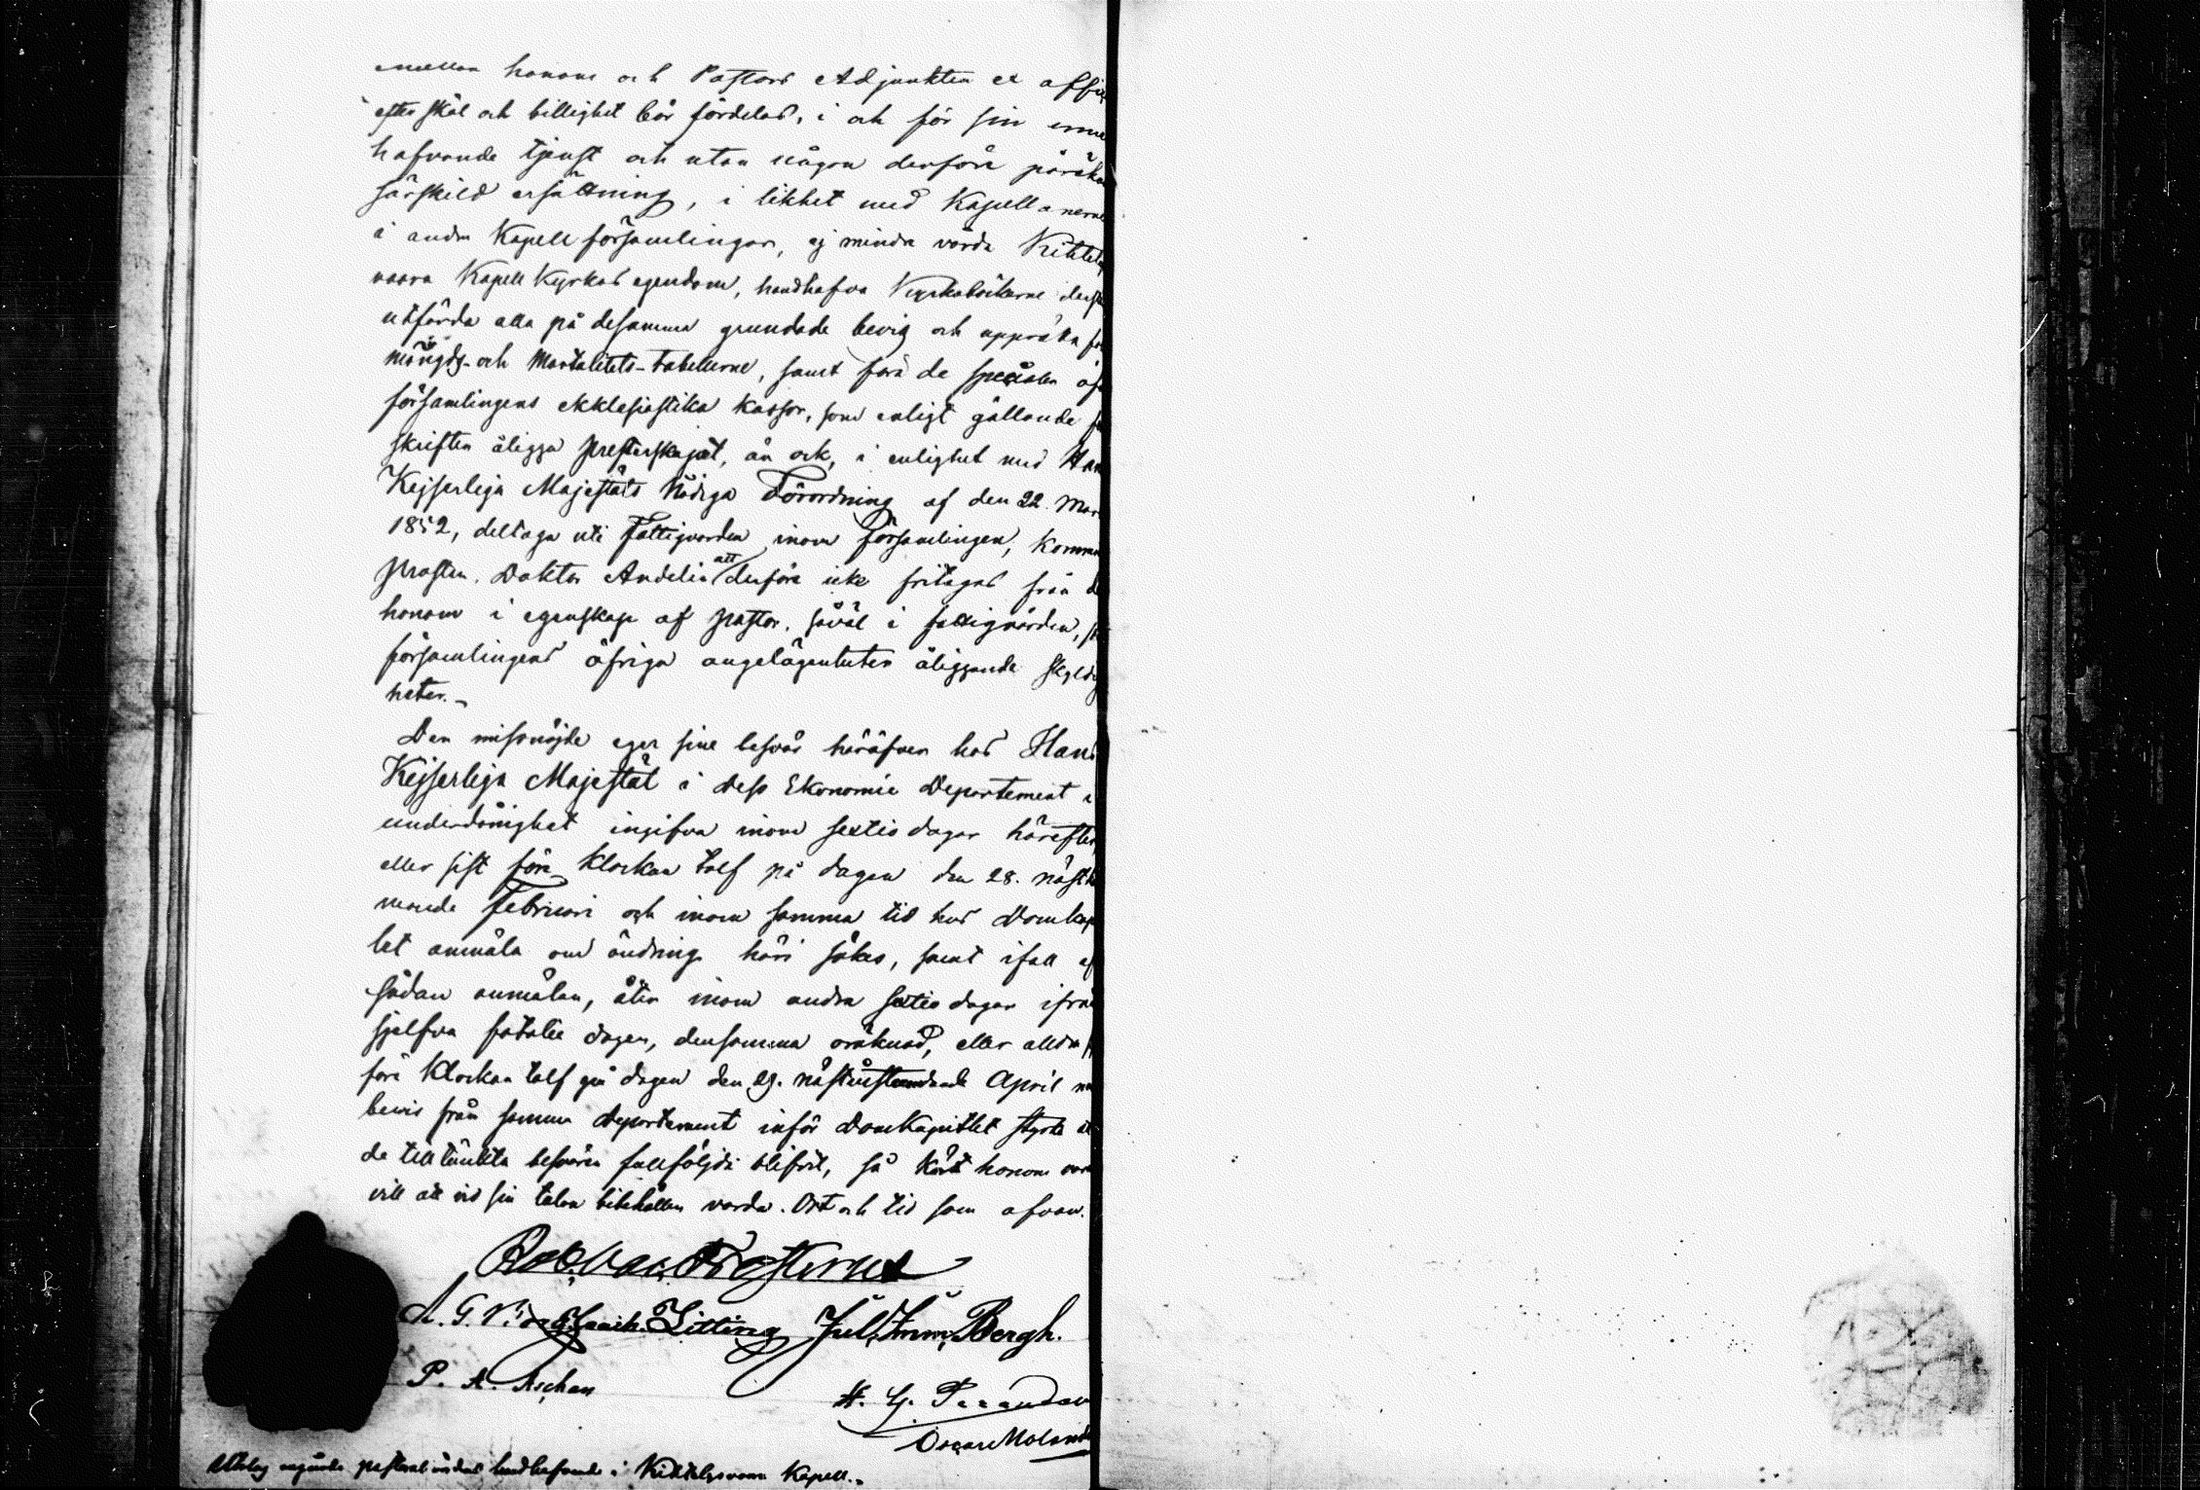 emellan honom och Pastors Adjunkten ex offi
efter skäl och billighet bör fördelas, i och för sin inne
hafvande tjenst och utan någon derföre påräkn
särskild ersättning, i likhet med Kapellanerne
i andra Kapellförsamlingar, ej mindre vårda Kiktelys
vaara Kapell Kyrkas egendom, handhafva Kyrkoböckerne ders
utfärda alla på desamma grundade bevis och upprätta fo
mängds- och Mortalitets-tabellerne, samt föra de speciala öf
församlingens ekklesiastika kassor, som enligt gällande f
skrifter åligga Presterskapet, än ock, i enlighet med Han
Kejserliga Majestäts Nådiga Förordning af den 22 Mar
1852, deltaga uti fattigvården inom församlingen, komm
Prosten, Doktor Andelin att derföre icke fritagas från d
honom i egenskap af pastor, såväl i fattigvården, s
församlingens öfriga angelägenheter åliggande skyldig
heter.-
Den missnöjde eger sine besvär häröfver hos Hans
Kejserliga Majestät i Dess Ekonomie Departement i
underdånighet ingifva inom sextio dagar härefter,
eller sist före klockan tolf på dagen den 28. nästk
mande Februari och inom samma tid hos Domkap
let anmäla om ändring häri sökes, samt ifall af
sådan anmälan, åter inom andra sextio dagar ifrån
sjelfva fatalie dagen, densamma oräknad, eller alldra s
före klockan tolf på dagen den 29. nästinstundande April m
bevis från samma departement inför Domkapitlet styrka at
de tilltänkta besvären fullföljda blifvit, så kärt honom vara
vill att vid sin talan bibehållen varda. Ort och tid som ofvan.
Rob. Val. Frosterus
A. G. Henrik Litting Jul. Imm. Bergh.
P. A. Aschan
H. G.
Oscar Moland
Utslag angående pastoral vårdens handhafvande i Kiktelysvaara Kapell.-